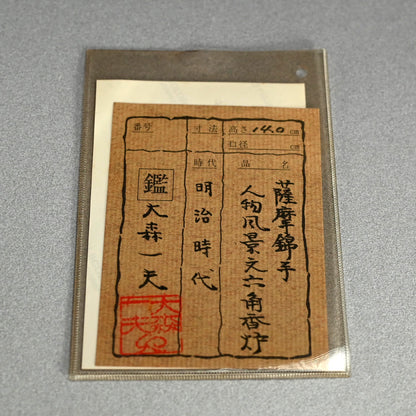 高さ 14.0 cm
口径 cm
寸法
番号
品名
薩摩錦手
人物風景文六角香炉
時代
明治時代
鑑
大森一夫